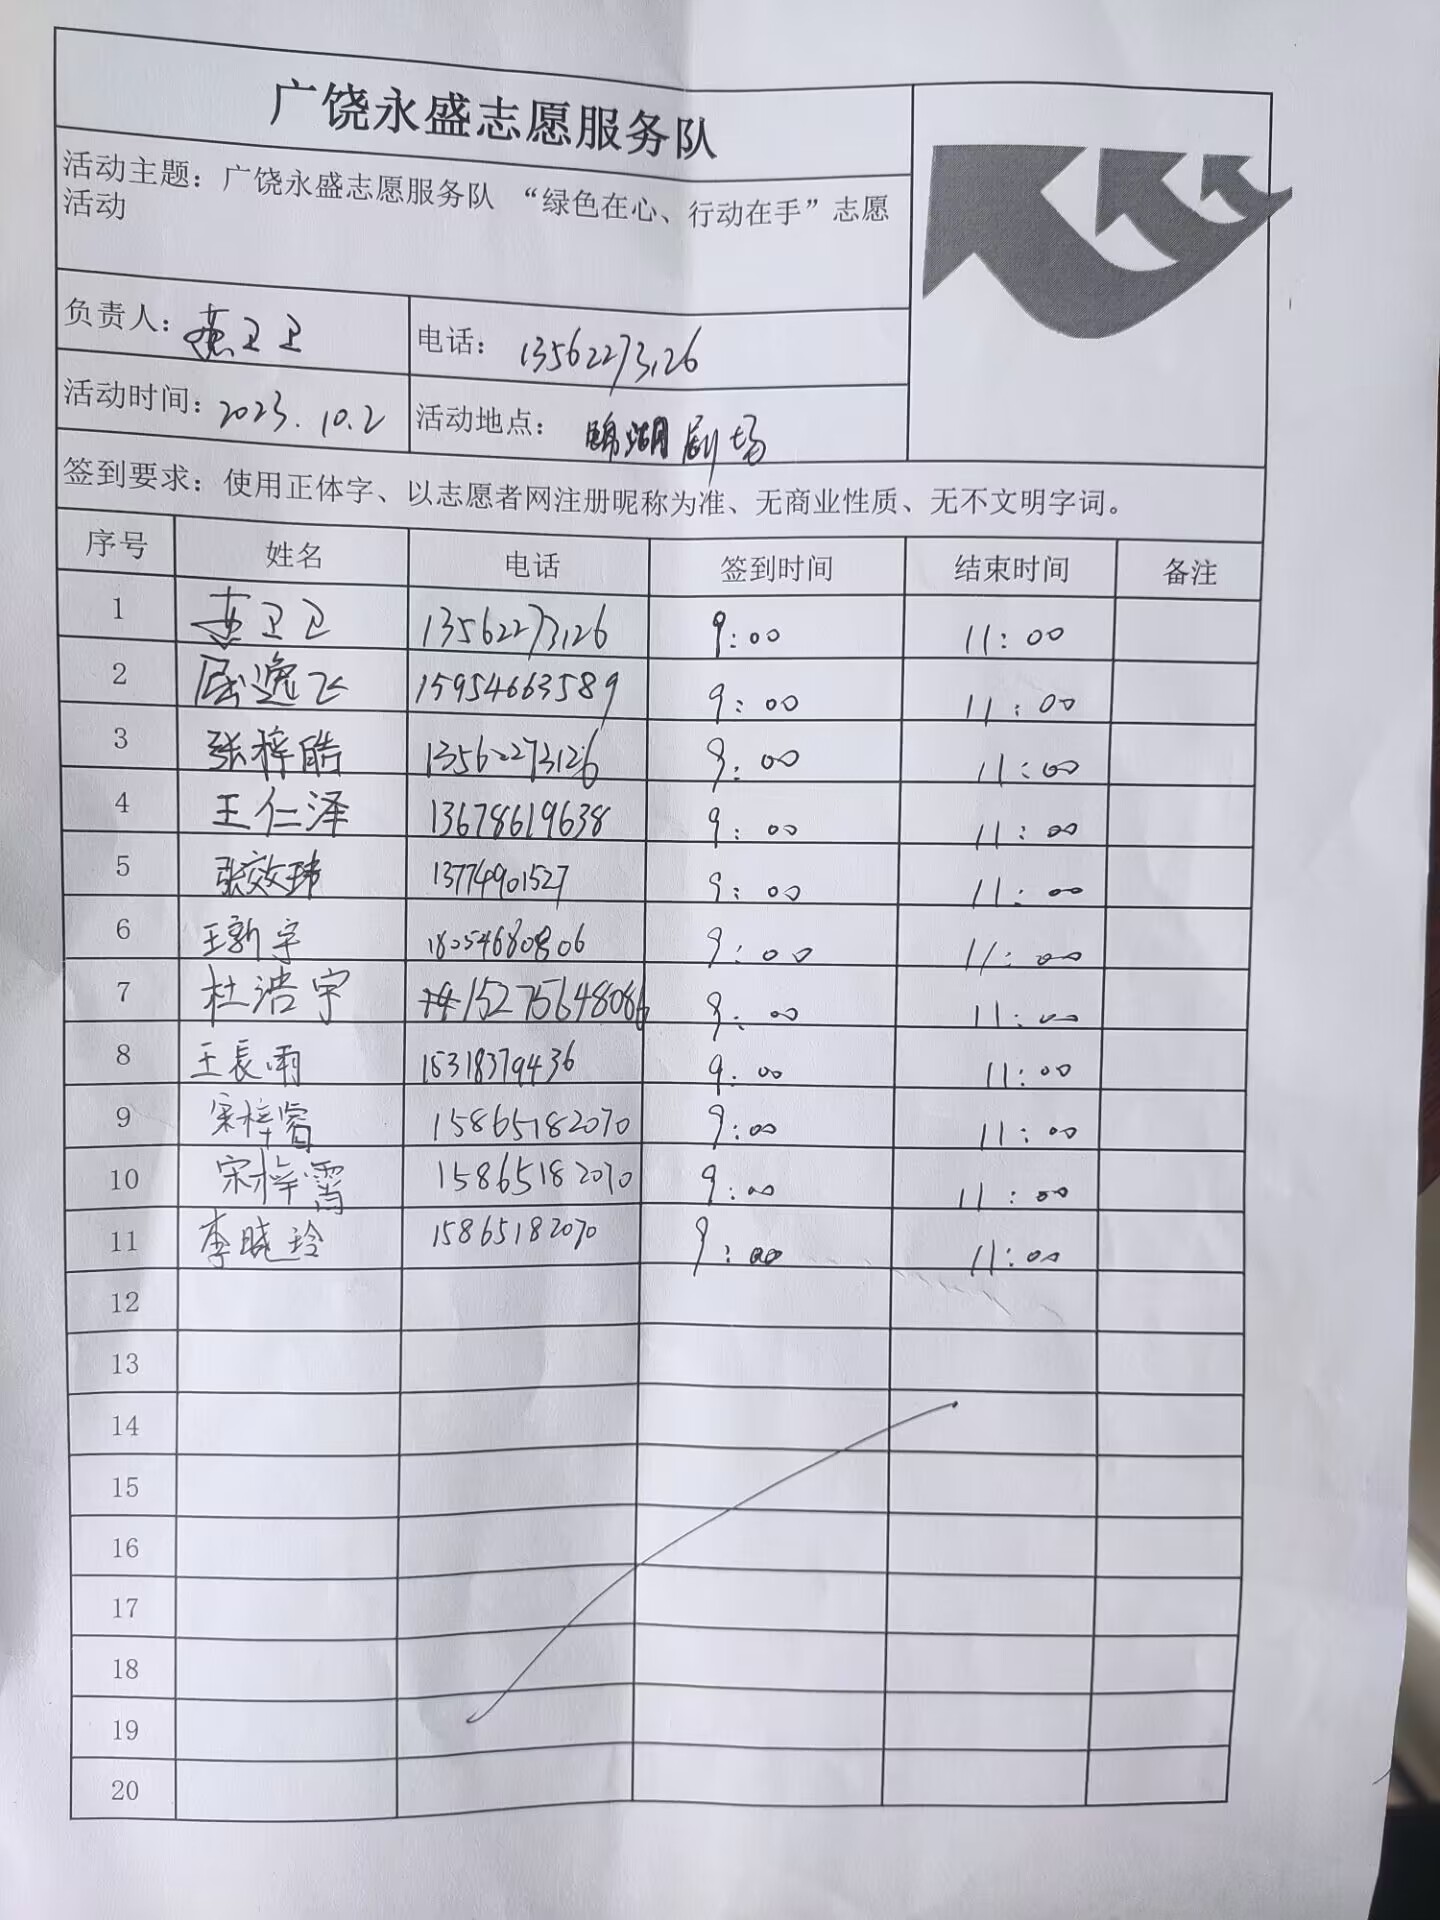 广饶永盛志愿服务队
活动主题：广饶永盛志愿服务队 “绿色在心、行动在手”志愿
活动
负责人： 卫卫 电话： 13562273126
活动时间： 2023.10.2 活动地点： 锦湖剧场
签到要求：使用正体字、以志愿者网注册昵称为准、无商业性质、无不文明字词。
序号 姓名 电话 签到时间 结束时间 备注
1 卫卫 13562273126 9:00 11:00
2 逸飞 15954663589 9:00 11:00
3 张梓皓 13562273126 9:00 11:00
4 王仁泽 13678619638 9:00 11:00
5 张效玮 13774901527 9:00 11:00
6 王新宇 18054680806 9:00 11:00
7 杜浩宇 15275648086 9:00 11:00
8 王長雨 15318379436 9:00 11:00
9 宋梓睿 15865182070 9:00 11:00
10 宋梓霄 15865182070 9:00 11:00
11 李晓玲 15865182070 9:00 11:00
12
13
14
15
16
17
18
19
20